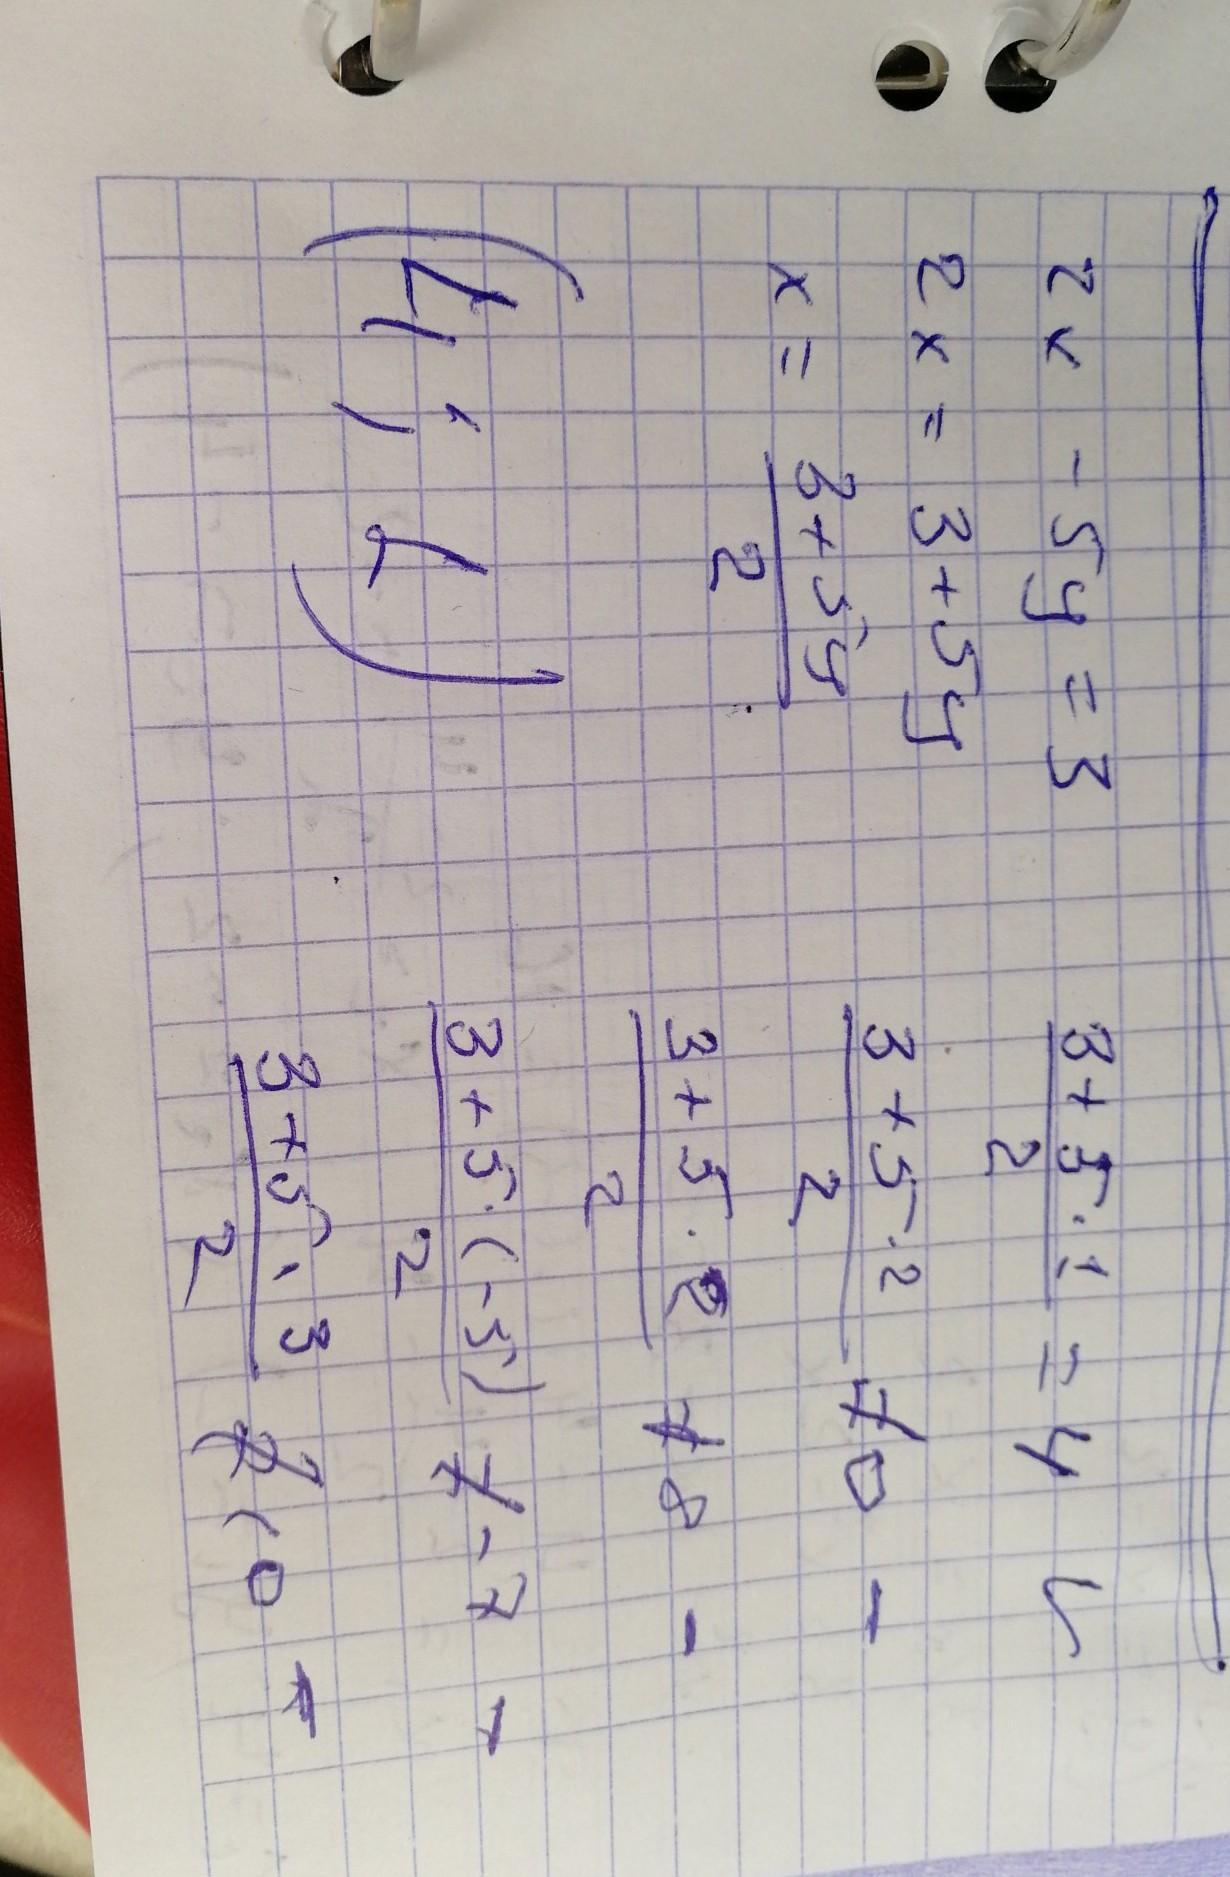 2x - 5y = 3
2x = 3 + 5y
x = (3 + 5y)/2
(4; 1)
(3 + 5·1)/2 = 4
(3 + 5·2)/2 ≠ 0 -
(3 + 5·2)/2 ≠ 8 -
(3 + 5·(-5))/2 ≠ -7 -
(3 + 5·3)/2 ≠ 10 -